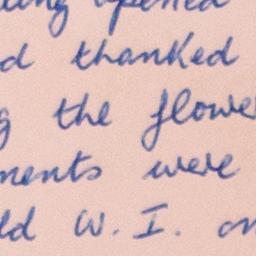 opened
thanked
the flower
ments were
ld W. I. on